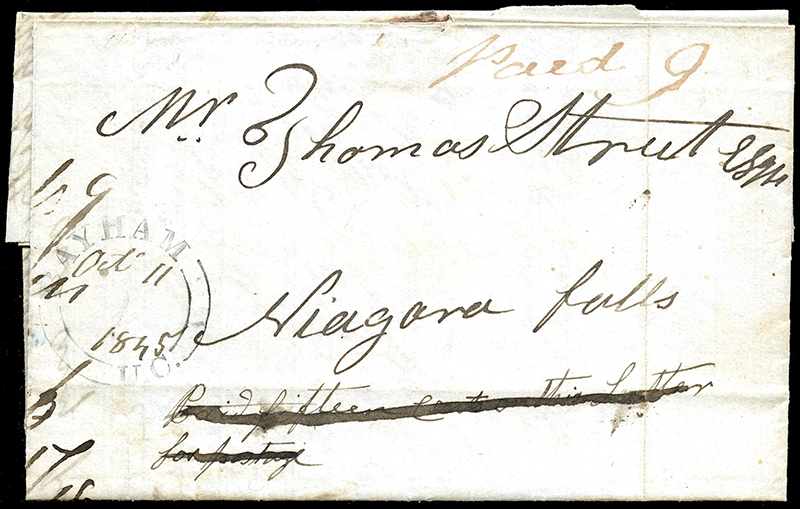 Paid 9
Mr. Thomas Street Esqr
9
AYHAM
Oct 11
1845
U.C.
Niagara falls
Paid fifteen cents this Letter
for postage
3
17
18